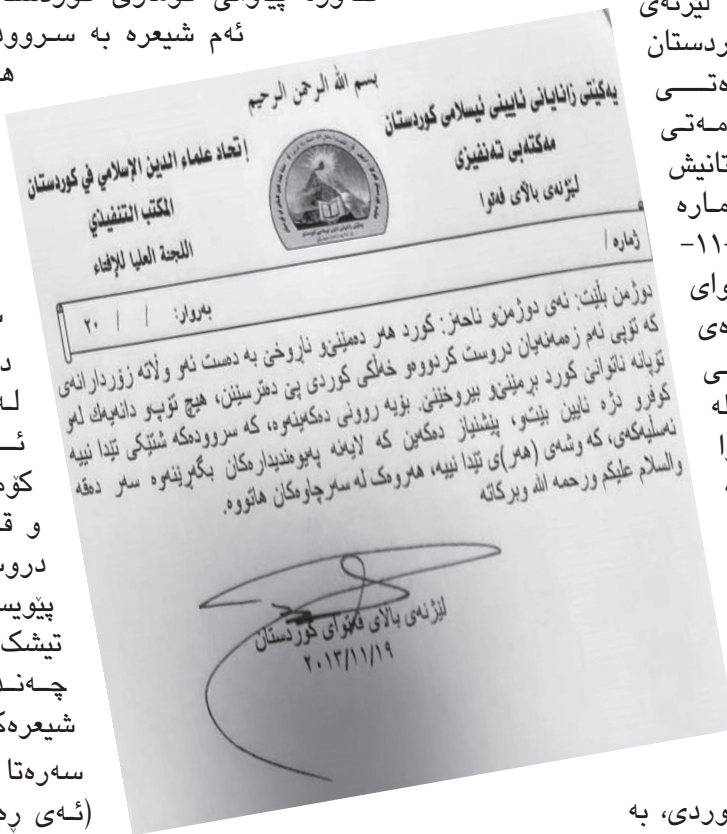 ئەم شیعرە بە سروود
لیژنەی
ردستان
ەتی
مەتی
تانیش
مارە
-١١-
وای
ەی
ی
لە
را
بسم الله الرحمن الرحيم
یەکێتی زانایانی ئایینی ئیسلامی کوردستان
مەکتەبی تەنفیزی
لێژنەی بالای فەتوا
إتحاد علماء الدين الإسلامي في كوردستان
المكتب التنفيذي
اللجنة العليا للإفتاء
ژمارە /
بەروار: / / ٢٠
دوژمن بڵێت: ئەی دوژمن‌و ناحەز: کورد هەر دەمێنێ‌و ناڕوخێ بە دەست ئەو وڵاتە زۆردارانەی
کە تۆپی ئەم زەمەنەیان دروست کردووەو خەڵکی کوردی پێ دەترسێنن، هیچ تۆپ‌و دانەیەك لەو
تۆپانە ناتوانێ کورد برمێنێ‌و بیروخێنێ. بۆیە روونی دەکەینەوە، کە سروودەکە شتێکی تێدا نییە
کوفرو دژە ئایین بێت‌و، پێشنیاز دەکەین کە لایەنە پەیوەندیدارەکان بگەڕێنەوە سەر دەقە
ئەسڵیەکەی، کە وشەی (هەر)ی تێدا نییە، هەروەک لە سەرچاوەکان هاتووە.
والسلام عليكم ورحمه الله وبركاته
لێژنەی بالای فەتوای کوردستان
٢٠١٣/١١/١٩
د
لە
ئـ
کۆم
و ق
دروس
پێویس
تیشک
چەند
شیعرەک
سەرەتا
(ئەی ڕە
وردی، بە